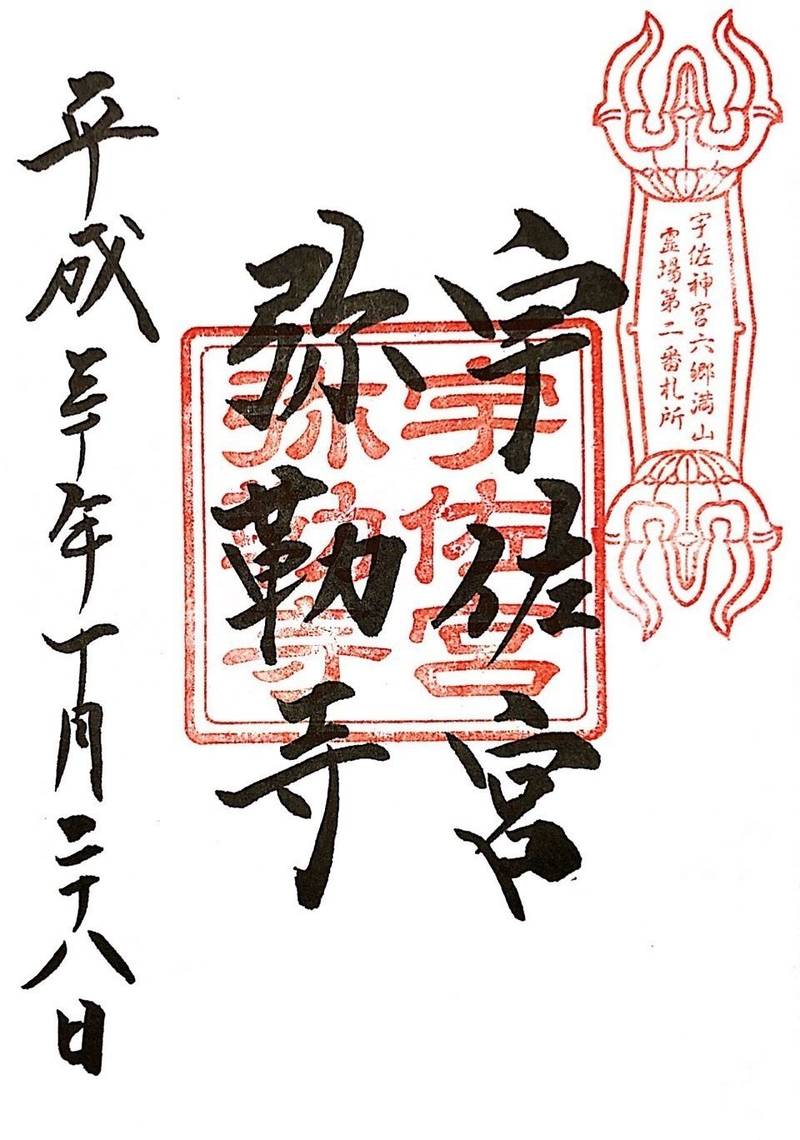 宇佐神宮六郷満山
霊場第二番札所
宇佐宮
弥勒寺
宇佐宮
弥勒寺
平成三十年十月二十八日